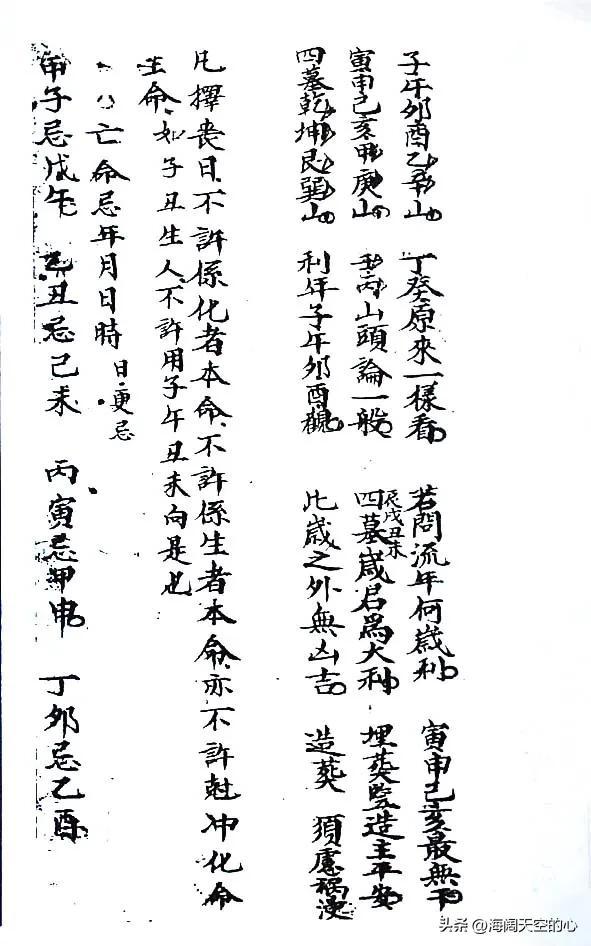 子午卯酉乙辛山 丁癸原來一樣看 若問流年何歲利 寅申巳亥最無干
寅申巳亥甲庚山 壬丙山頭論一般 四墓辰戌丑未歲君為大利 埋葬豎造主平安
四墓乾坤艮巽山 利年子午卯酉觀 此歲之外無凶吉 造葬 須慮禍
凡擇喪日不許係化者本命不許係生者本命亦不許尅冲化命
生命如子丑生人不許用子午丑未向是也
亡命忌年月日時 日更忌
甲子忌戊午 乙丑忌己未 丙寅忌甲申 丁卯忌乙酉
头条 @海阔天空的心